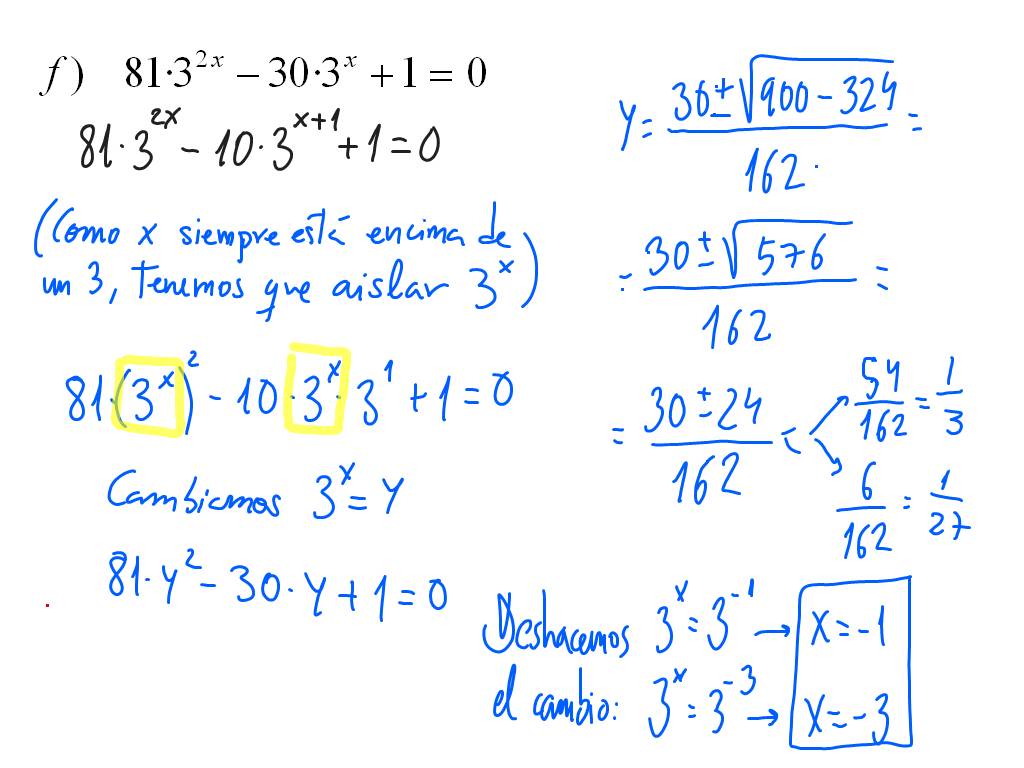 f) 81·3^{2x} − 30·3^x + 1 = 0
81·3^{2x} − 10·3^{x+1} + 1 = 0
(Como x siempre está encima de
un 3, tenemos que aislar 3^x)
81·(3^x)^2 − 10·3^x·3^1 + 1 = 0
Cambiamos 3^x = y
81·y^2 − 30·y + 1 = 0
y = (30 ± √(900 − 324)) / 162 =
= (30 ± √576) / 162 =
= (30 ± 24) / 162 =
54/162 = 1/3
6/162 = 1/27
Deshacemos 3^x = 3^{-1} → x = -1
el cambio: 3^x = 3^{-3} → x = -3